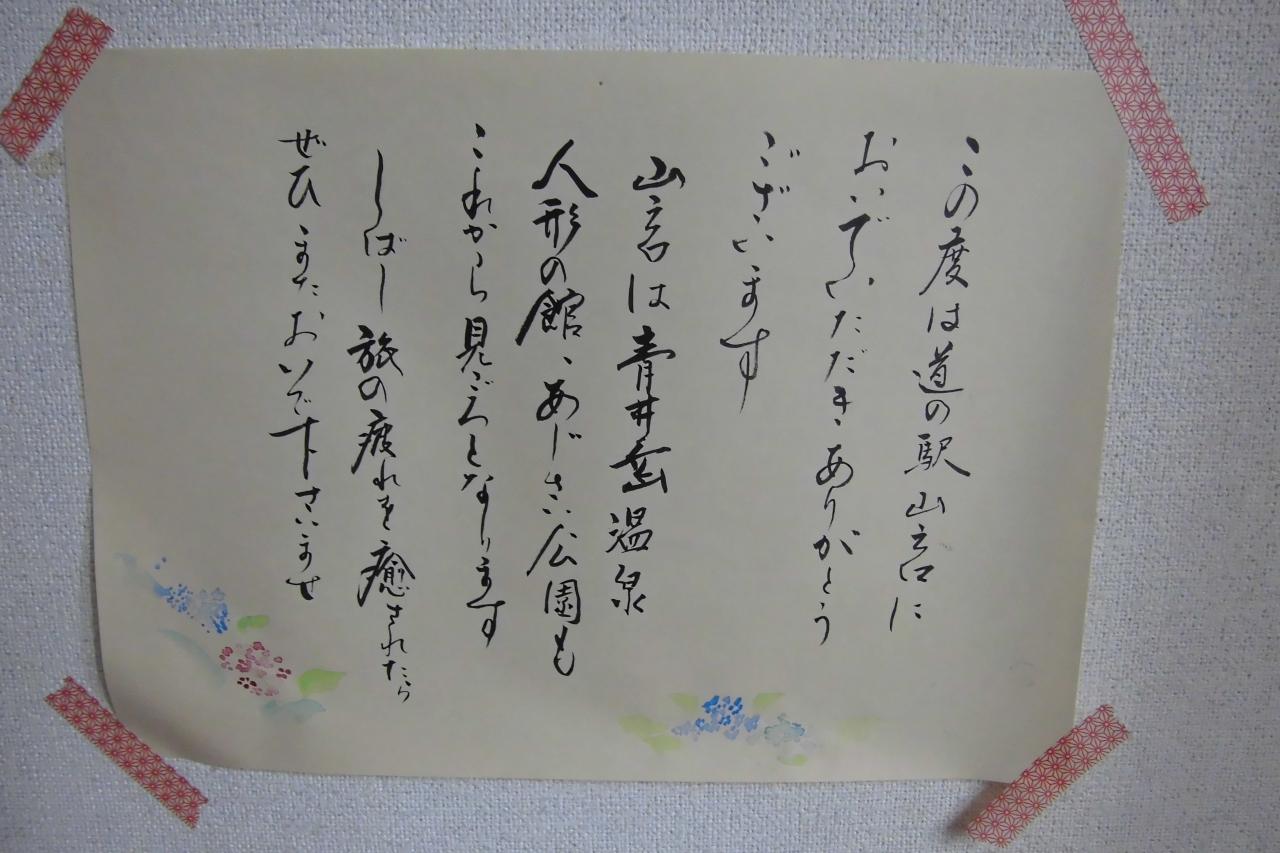 この度は道の駅山之口に
おいでいただきありがとう
ございます
山之口は青井岳温泉
人形の館、あじさい公園も
これから見ごろとなります
しばし旅の疲れを癒されたら
ぜひまたおいで下さいませ